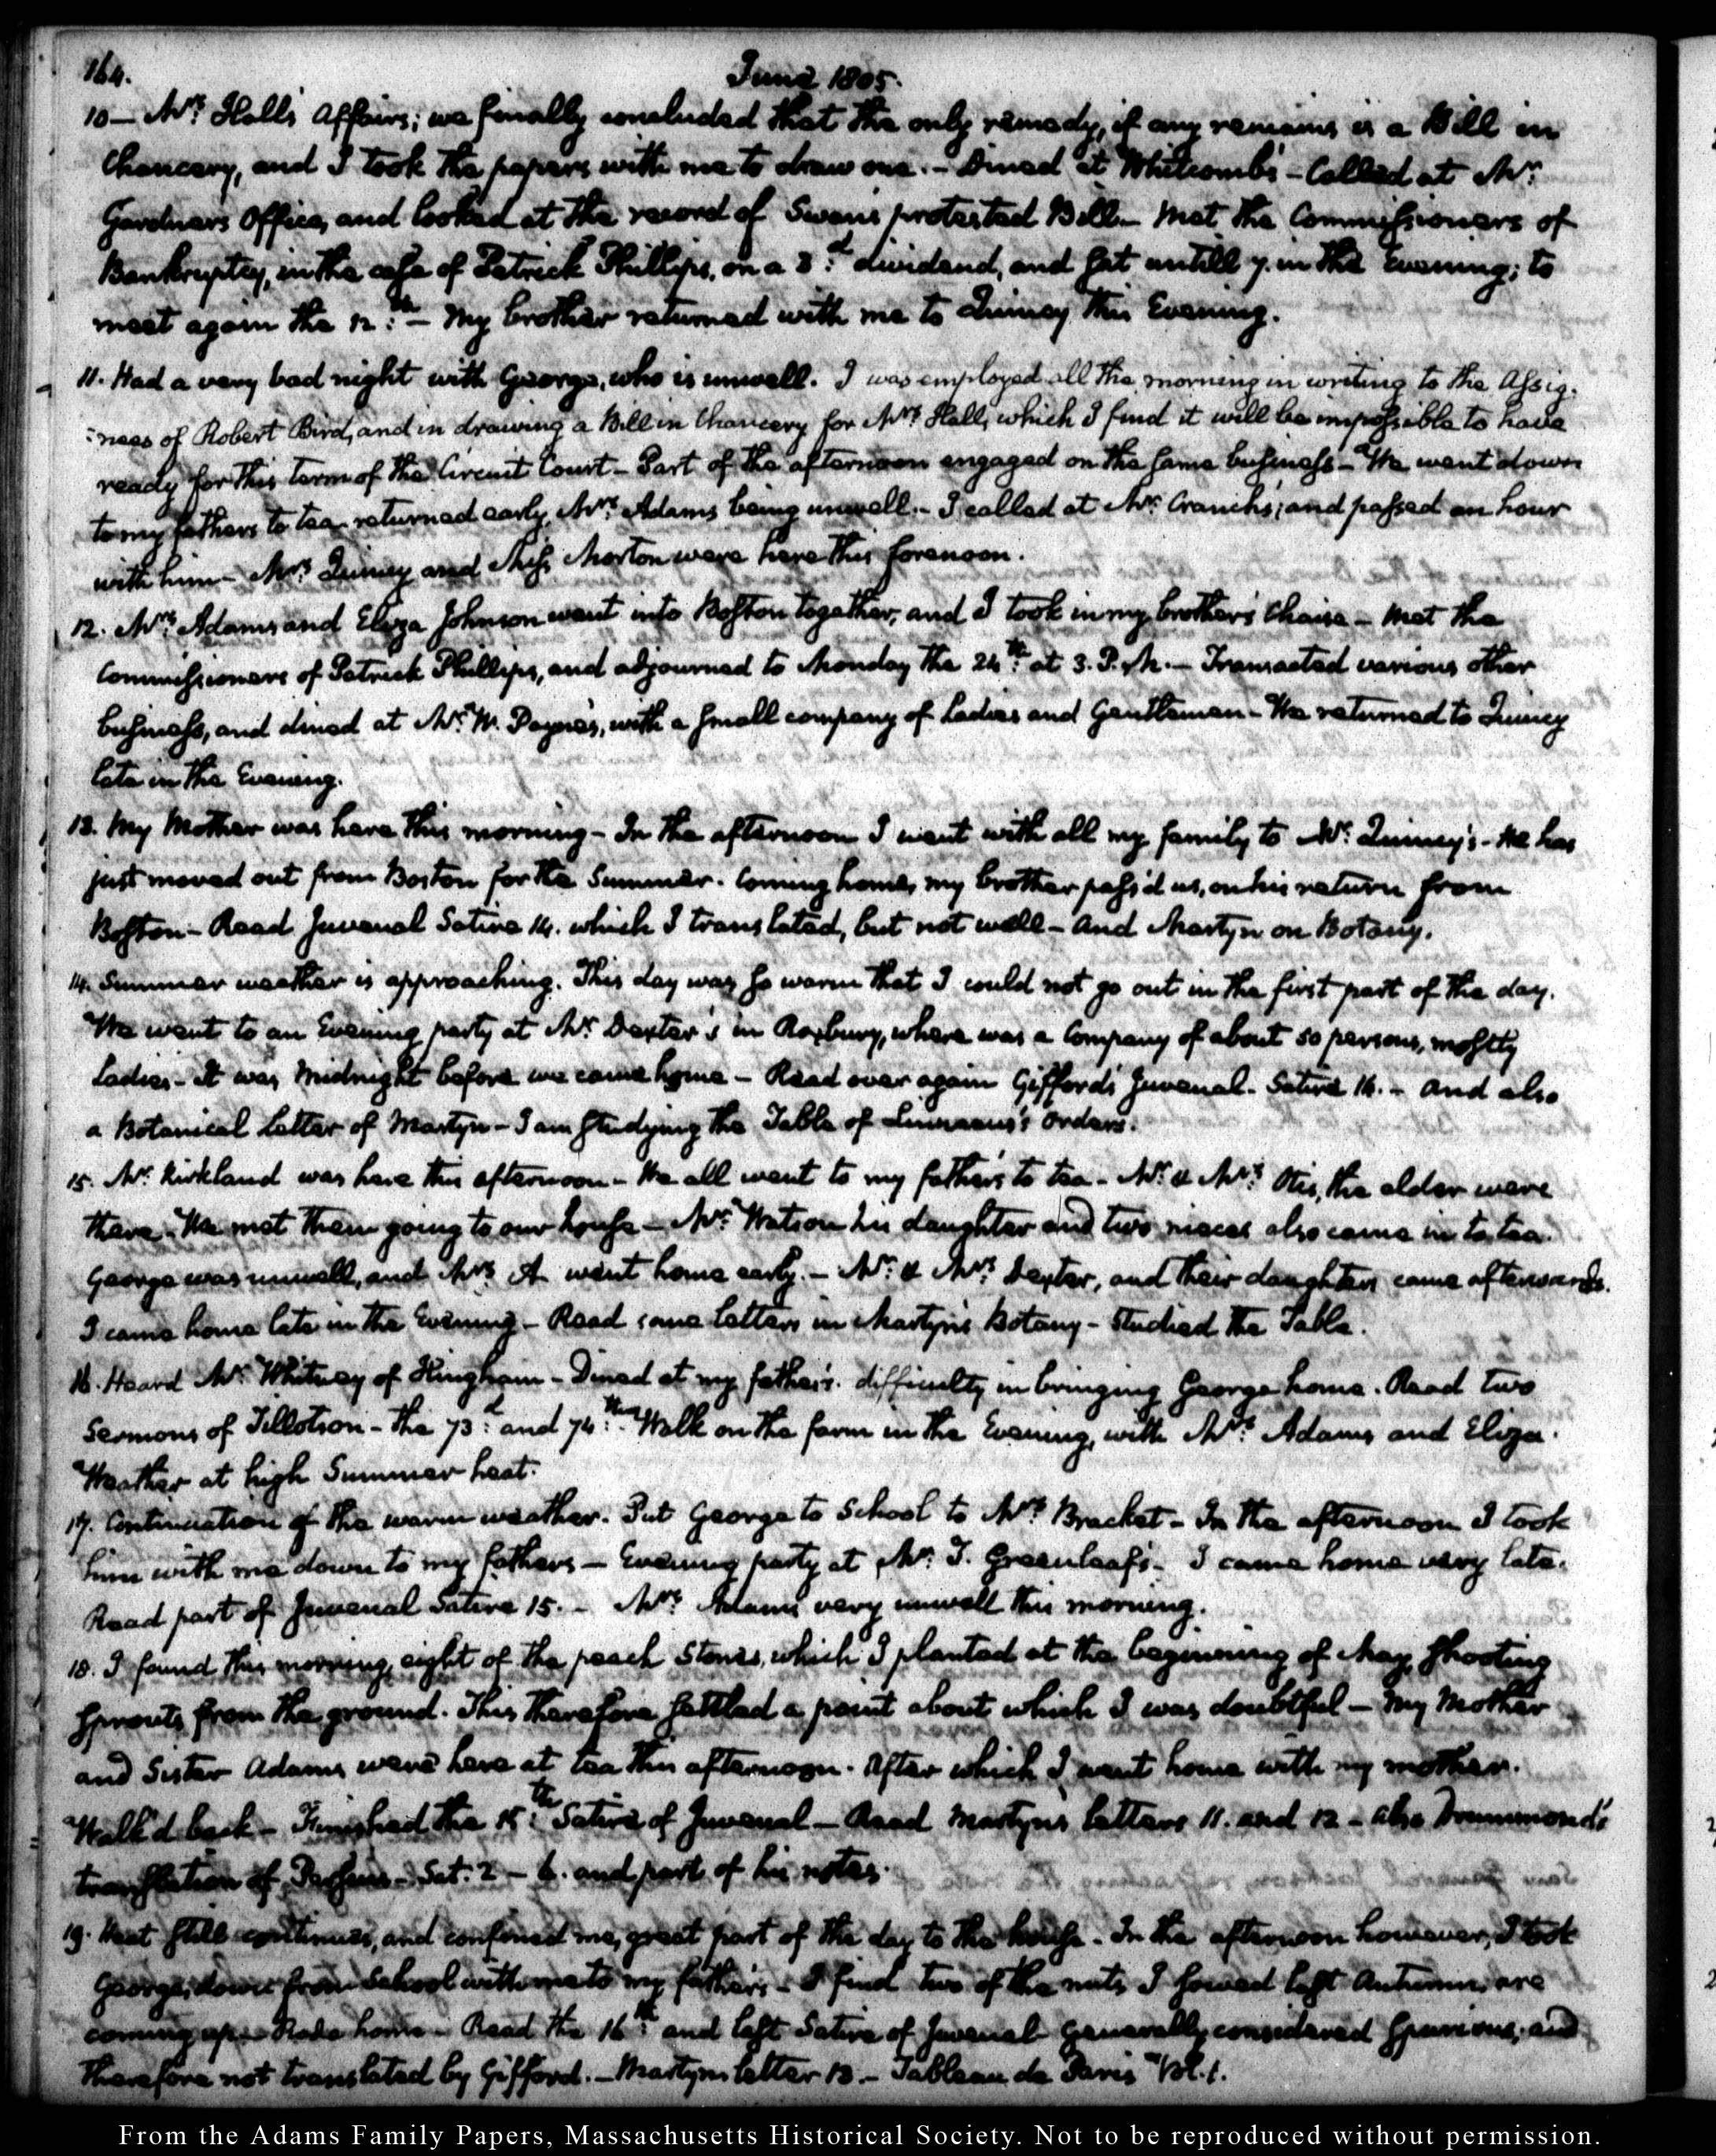 164.
June 1805.
10 — Mrs. Hall's Affairs; we finally concluded that the only remedy, if any remains is a Bill in
Chancery, and I took the papers with me to draw one. – Dined at Whitcomb's – Called at Mr.
Gardners Office, and looked at the record of Swans protested Bill – Met the Commissioners of
Bankruptcy, in the case of Patrick Phillips, on a 3:d dividend, and sat untill 7. in the Evening; to
meet again the 12:th – My brother returned with me to Quincy this Evening.
11. Had a very bad night with George, who is unwell. I was employed all the morning in writing to the Assig-
:nees of Robert Bird, and in drawing a Bill in Chancery for Mrs. Hall, which I find it will be impossible to have
ready for this term of the Circuit Court – Part of the afternoon engaged on the same business – We went down
to my fathers to tea – returned early, Mrs. Adams being unwell. – I called at Mr. Cranch's; and passed an hour
with him – Mrs. Quincy and Miss Morton were here this forenoon.
12. Mrs. Adams and Eliza Johnson went into Boston together, and I took in my brother's Chaise – Met the
Commissioners of Patrick Phillips, and adjourned to Monday the 24:th at 3. P.M. – Transacted various other
business, and dined at Mr. W. Payne's, with a small company of Ladies and Gentlemen – We returned to Quincy
late in the Evening.
13. My Mother was here this morning – In the afternoon I went with all my family to Mr. Quincy's – He has
just moved out from Boston for the Summer. Coming home, my brother pass'd us, on his return from
Boston – Read Juvenal Satire 14. which I translated, but not well – And Martyn on Botany.
14. Summer weather is approaching. This day was so warm that I could not go out in the first part of the day.
We went to an Evening party at Mr. Dexter's in Roxbury, where was a Company of about 50 persons, mostly
Ladies – It was Midnight before we came home – Read over again Gifford's Juvenal. Satire 14. – And also
a Botanical letter of Martyn – I am studying the Table of Linnaeus's Orders.
15. Mr. Kirkland was here this afternoon – We all went to my father's to tea – Mr. & Mrs. Otis, the elder were
there. We met them going to our house – Mrs. Watson his daughter and two nieces also came in to tea.
George was unwell, and Mrs. A. went home early. – Mr. & Mrs. Dexter, and their daughter came afterwards.
I came home late in the Evening – Read some letters in Martyn's Botany – Studied the Table.
16. Heard Mr. Whitney of Hingham – Dined at my father's. difficulty in bringing George home. Read two
Sermons of Tillotson – The 73:d and 74:th Walk on the farm in the Evening, with Mrs. Adams and Eliza.
Weather at high Summer heat.
17. Continuation of the warm weather. Put George to School to Mrs. Bracket – In the afternoon I took
him with me down to my fathers – Evening party at Mr. T. Greenleaf's – I came home very late.
Read part of Juvenal Satire 15. – Mrs. Adams very unwell this morning.
18. I found this morning, eight of the peach Stones, which I planted at the beginning of May, shooting
sprouts from the ground. This therefore settled a point about which I was doubtful – My Mother
and Sister Adams were here at tea this afternoon. After which I went home with my mother.
Walk'd back – Finished the 15:th Satire of Juvenal – Read Martyns letters 11. and 12 – also Drummond's
translation of Persius – Sat. 2 – 6. and part of his notes.
19. Heat still continues, and confined me, great part of the day to the house. In the afternoon however, I took
George, down from School with me to my father's – I find two of the nuts I sowed last Autumn, are
coming up – Rode home – Read the 16:th and last Satire of Juvenal – generally considered spurious, and
therefore not translated by Gifford. – Martyns letter 13. – Tableau de Paris Vol. 1.
From the Adams Family Papers, Massachusetts Historical Society. Not to be reproduced without permission.